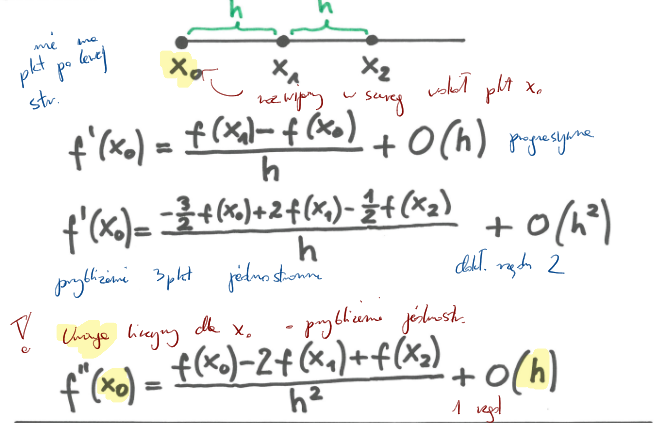 h h
nie ma
pkt po lewej
str.
x₀ x₁ x₂
rozwijamy w szereg wokół pkt x₀
f'(x₀) = \frac{f(x₁) - f(x₀)}{h} + O(h) progresywne
f'(x₀) = \frac{-\frac{3}{2}f(x₀) + 2f(x₁) - \frac{1}{2}f(x₂)}{h} + O(h²)
przybliżenie 3pkt jednostronne dokł. rzędu 2
Uwaga liczymy dla x₀ - przybliżenie jednostr.
f''(x₀) = \frac{f(x₀) - 2f(x₁) + f(x₂)}{h²} + O(h)
1 rząd